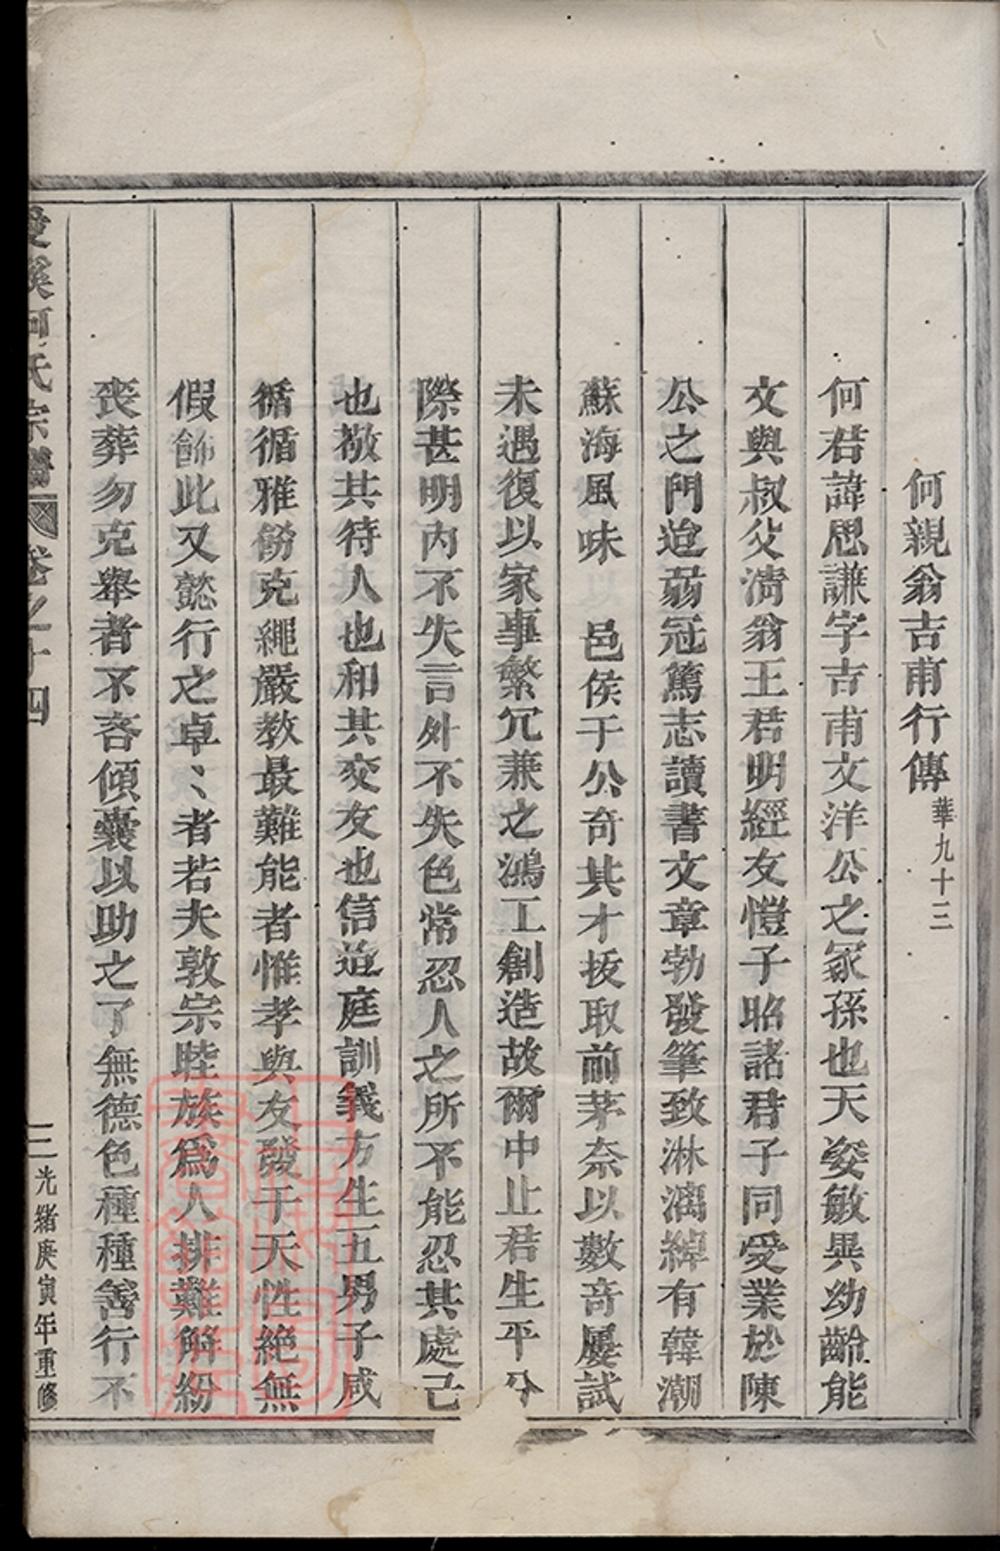 何親翁吉甫行傳 華九十三
何君諱思謙字吉甫文洋公之冢孫也天姿敏異幼齡能
文與叔父淸翁王君明經友愷子昭諸君子同受業於陳
公之門迨弱冠篤志讀書文章勃發筆致淋漓綽有韓潮
蘇海風味 邑侯于公奇其才拔取前茅奈以數奇屢試
未遇復以家事繁冗兼之鴻工創造故爾中止君生平分
際甚明內不失言外不失色常忍人之所不能忍其處己
也敬其待人也和其交友也信趨庭訓義方生五男子咸
循循雅飭克繩嚴教最難能者惟孝與友發于天性絶無
假飾此又懿行之卓〻者若夫敦宗睦族爲人排難解紛
喪葬勿克舉者不吝傾囊以助之了無德色種種善行不
溪何氏宗譜 卷之十四 三 光緒庚寅年重修